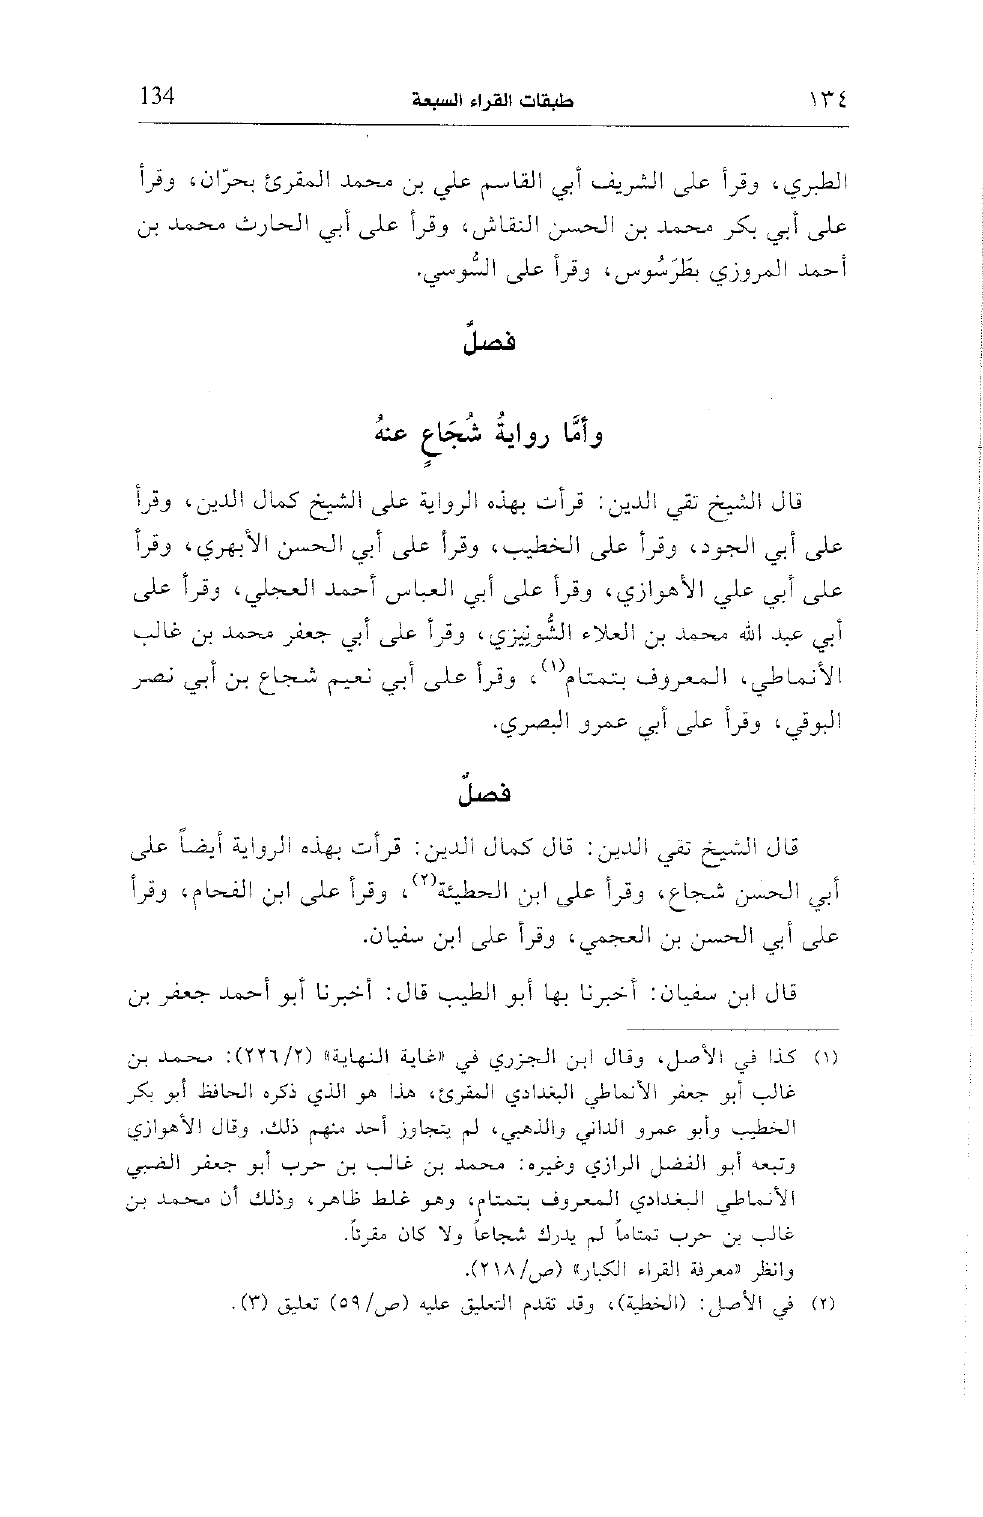 ١٣٤ طبقات القراء السبعة 134
الطبري، وقرأ على الشريف أبي القاسم علي بن محمد المقرئ بحرّان، وقرأ
على أبي بكر محمد بن الحسن النقاش، وقرأ على أبي الحارث محمد بن
أحمد المروزي بطَرَسُوس، وقرأ على السُّوسي.
فصلٌ
وأمَّا روايةُ شُجَاعٍ عنهُ
قال الشيخ تقي الدين: قرأت بهذه الرواية على الشيخ كمال الدين، وقرأ
على أبي الجود، وقرأ على الخطيب، وقرأ على أبي الحسن الأبهري، وقرأ
على أبي علي الأهوازي، وقرأ على أبي العباس أحمد العجلي، وقرأ على
أبي عبد الله محمد بن العلاء الشُّونِيزي، وقرأ على أبي جعفر محمد بن غالب
الأنماطي، المعروف بتمتام(١)، وقرأ على أبي نعيم شجاع بن أبي نصر
البوقي، وقرأ على أبي عمرو البصري.
فصلٌ
قال الشيخ تقي الدين: قال كمال الدين: قرأت بهذه الرواية أيضاً على
أبي الحسن شجاع، وقرأ على ابن الحطيئة(٢)، وقرأ على ابن الفحام، وقرأ
على أبي الحسن بن العجمي، وقرأ على ابن سفيان.
قال ابن سفيان: أخبرنا بها أبو الطيب قال: أخبرنا أبو أحمد جعفر بن
(١) كذا في الأصل، وقال ابن الجزري في «غاية النهاية» (٢/‏٢٢٦): محمد بن
غالب أبو جعفر الأنماطي البغدادي المقرئ، هذا هو الذي ذكره الحافظ أبو بكر
الخطيب وأبو عمرو الداني والذهبي، لم يتجاوز أحد منهم ذلك. وقال الأهوازي
وتبعه أبو الفضل الرازي وغيره: محمد بن غالب بن حرب أبو جعفر الضبي
الأنماطي البغدادي المعروف بتمتام، وهو غلط ظاهر، وذلك أن محمد بن
غالب بن حرب تمتاماً لم يدرك شجاعاً ولا كان مقرئاً.
وانظر «معرفة القراء الكبار» (ص/٢١٨).
(٢) في الأصل: (الخطية)، وقد تقدم التعليق عليه (ص/٥٩) تعليق (٣).